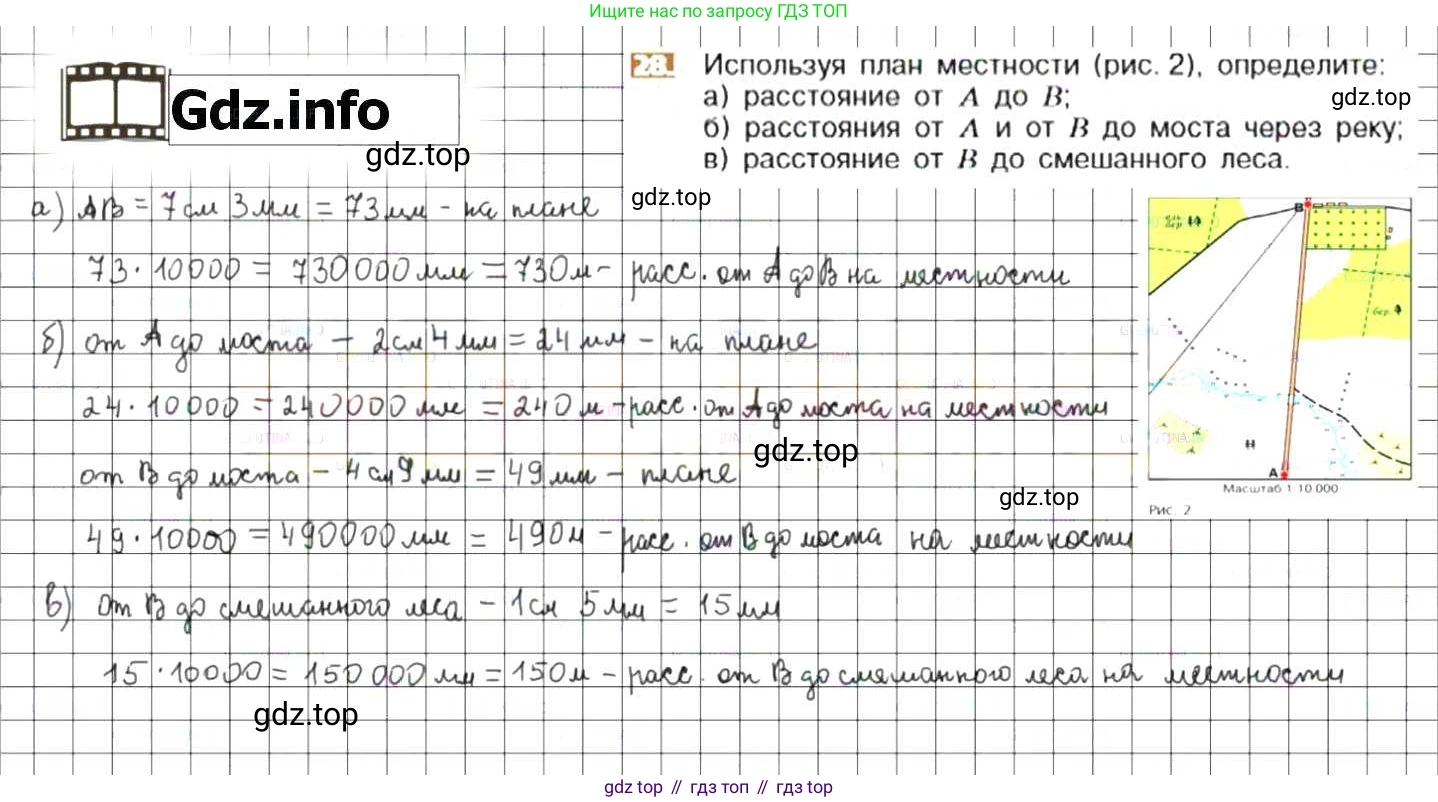 Ищите нас по запросу ГДЗ ТОП
Gdz.info
gdz.top
28. Используя план местности (рис. 2), определите:
а) расстояние от A до B;
gdz.top
б) расстояния от A и от B до моста через реку;
в) расстояние от B до смешанного леса.
gdz.top
а) AB = 7см 3мм = 73мм - на плане
73 · 10000 = 730000 мм = 730м - расс. от A до B на местности
б) от A до моста - 2см 4мм = 24 мм - на плане
24 · 10000 = 240000 мм = 240 м - расс. от A до моста на местности
gdz.top
от B до моста - 4см 9мм = 49мм - плане
gdz.top
49 · 10000 = 490000 мм = 490м - расс. от B до моста на местности
в) от B до смешанного леса - 1см 5мм = 15мм
15 · 10000 = 150 000 мм = 150м - расс. от B до смешанного леса на местности
gdz.top
B
бер.
бер.
A
Масштаб 1:10 000
Рис. 2
gdz top // гдз топ // гдз top